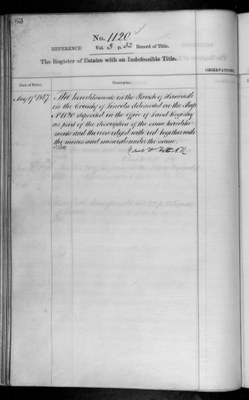 No. 1120
REFERENCE Vol. 3 p. 32 Record of Title.
The Register of Estates with an Indefeasible Title.
OBSERVATIONS
Date of Entry. Description.
May 17th 1867 All hereditaments in the Parish of
in the County of Lincoln delineated on the Map
No 1120 deposited in the office of Land Registry
as part of the description of the same heredita-
ments and thereon edged with red together with
the mines and minerals under the same